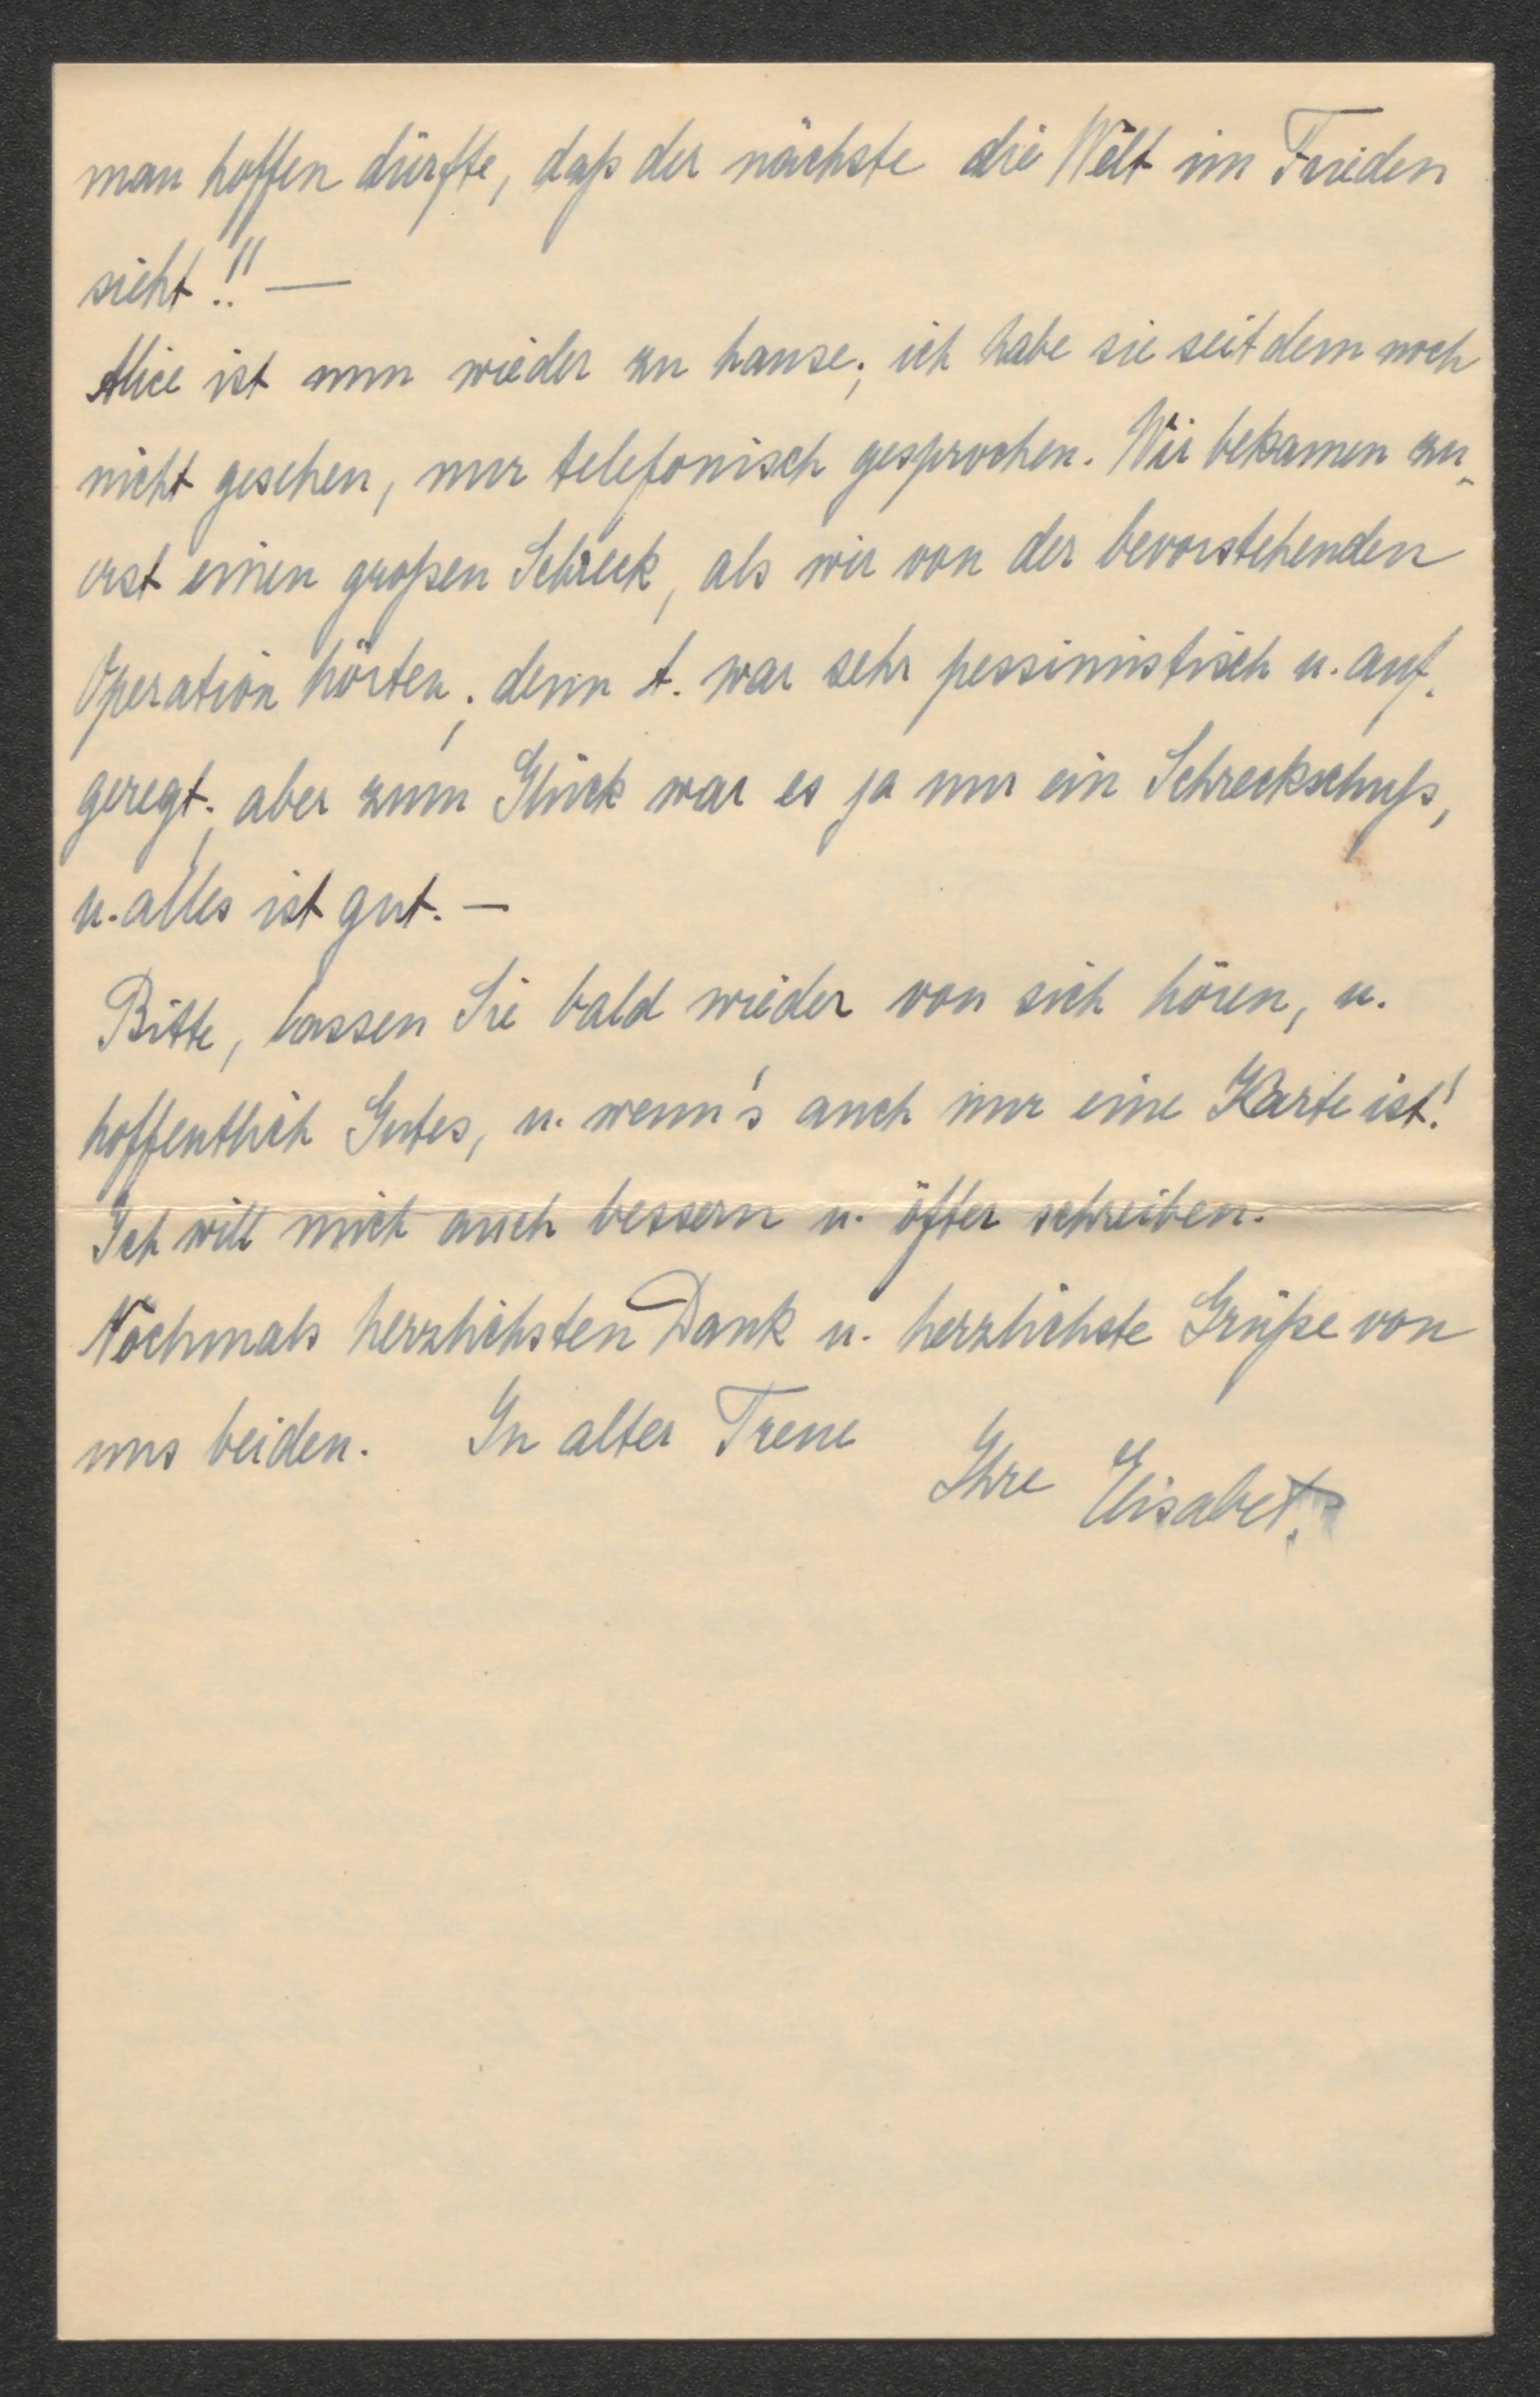 man hoffen dürfte, daß der nächste die Welt im Frieden
sieht!! —
Alice ist nun wieder zu hause; ich habe sie seit dem noch
nicht gesehen, nur telefonisch gesprochen. Wir bekamen zu-
erst einen großen Schreck, als wir von der bevorstehenden
Operation hörten; denn A. war sehr pessimistisch u. auf-
geregt; aber zum Glück war es ja nur ein Schreckschuß,
u. alles ist gut. —
Bitte, lassen Sie bald wieder von sich hören, u.
hoffentlich Gutes, u. wenn's auch nur eine Karte ist!
Ich will mich auch bessern u. öfter schreiben.
Nochmals herzlichsten Dank u. herzlichste Grüße von
uns beiden. In alter Treue
Ihre Elisabet.